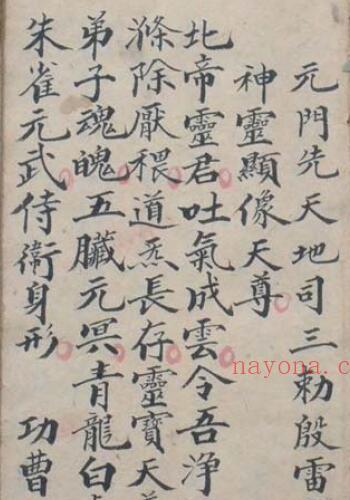 元門先天地司三勅殷雷
神靈顯像天尊
北帝靈君吐氣成雲令吾淨
滌除厭穢道炁長存靈寶天
弟子魂魄五臟元冥青龍白
朱雀元武侍衛身形 功曹
nayona.c